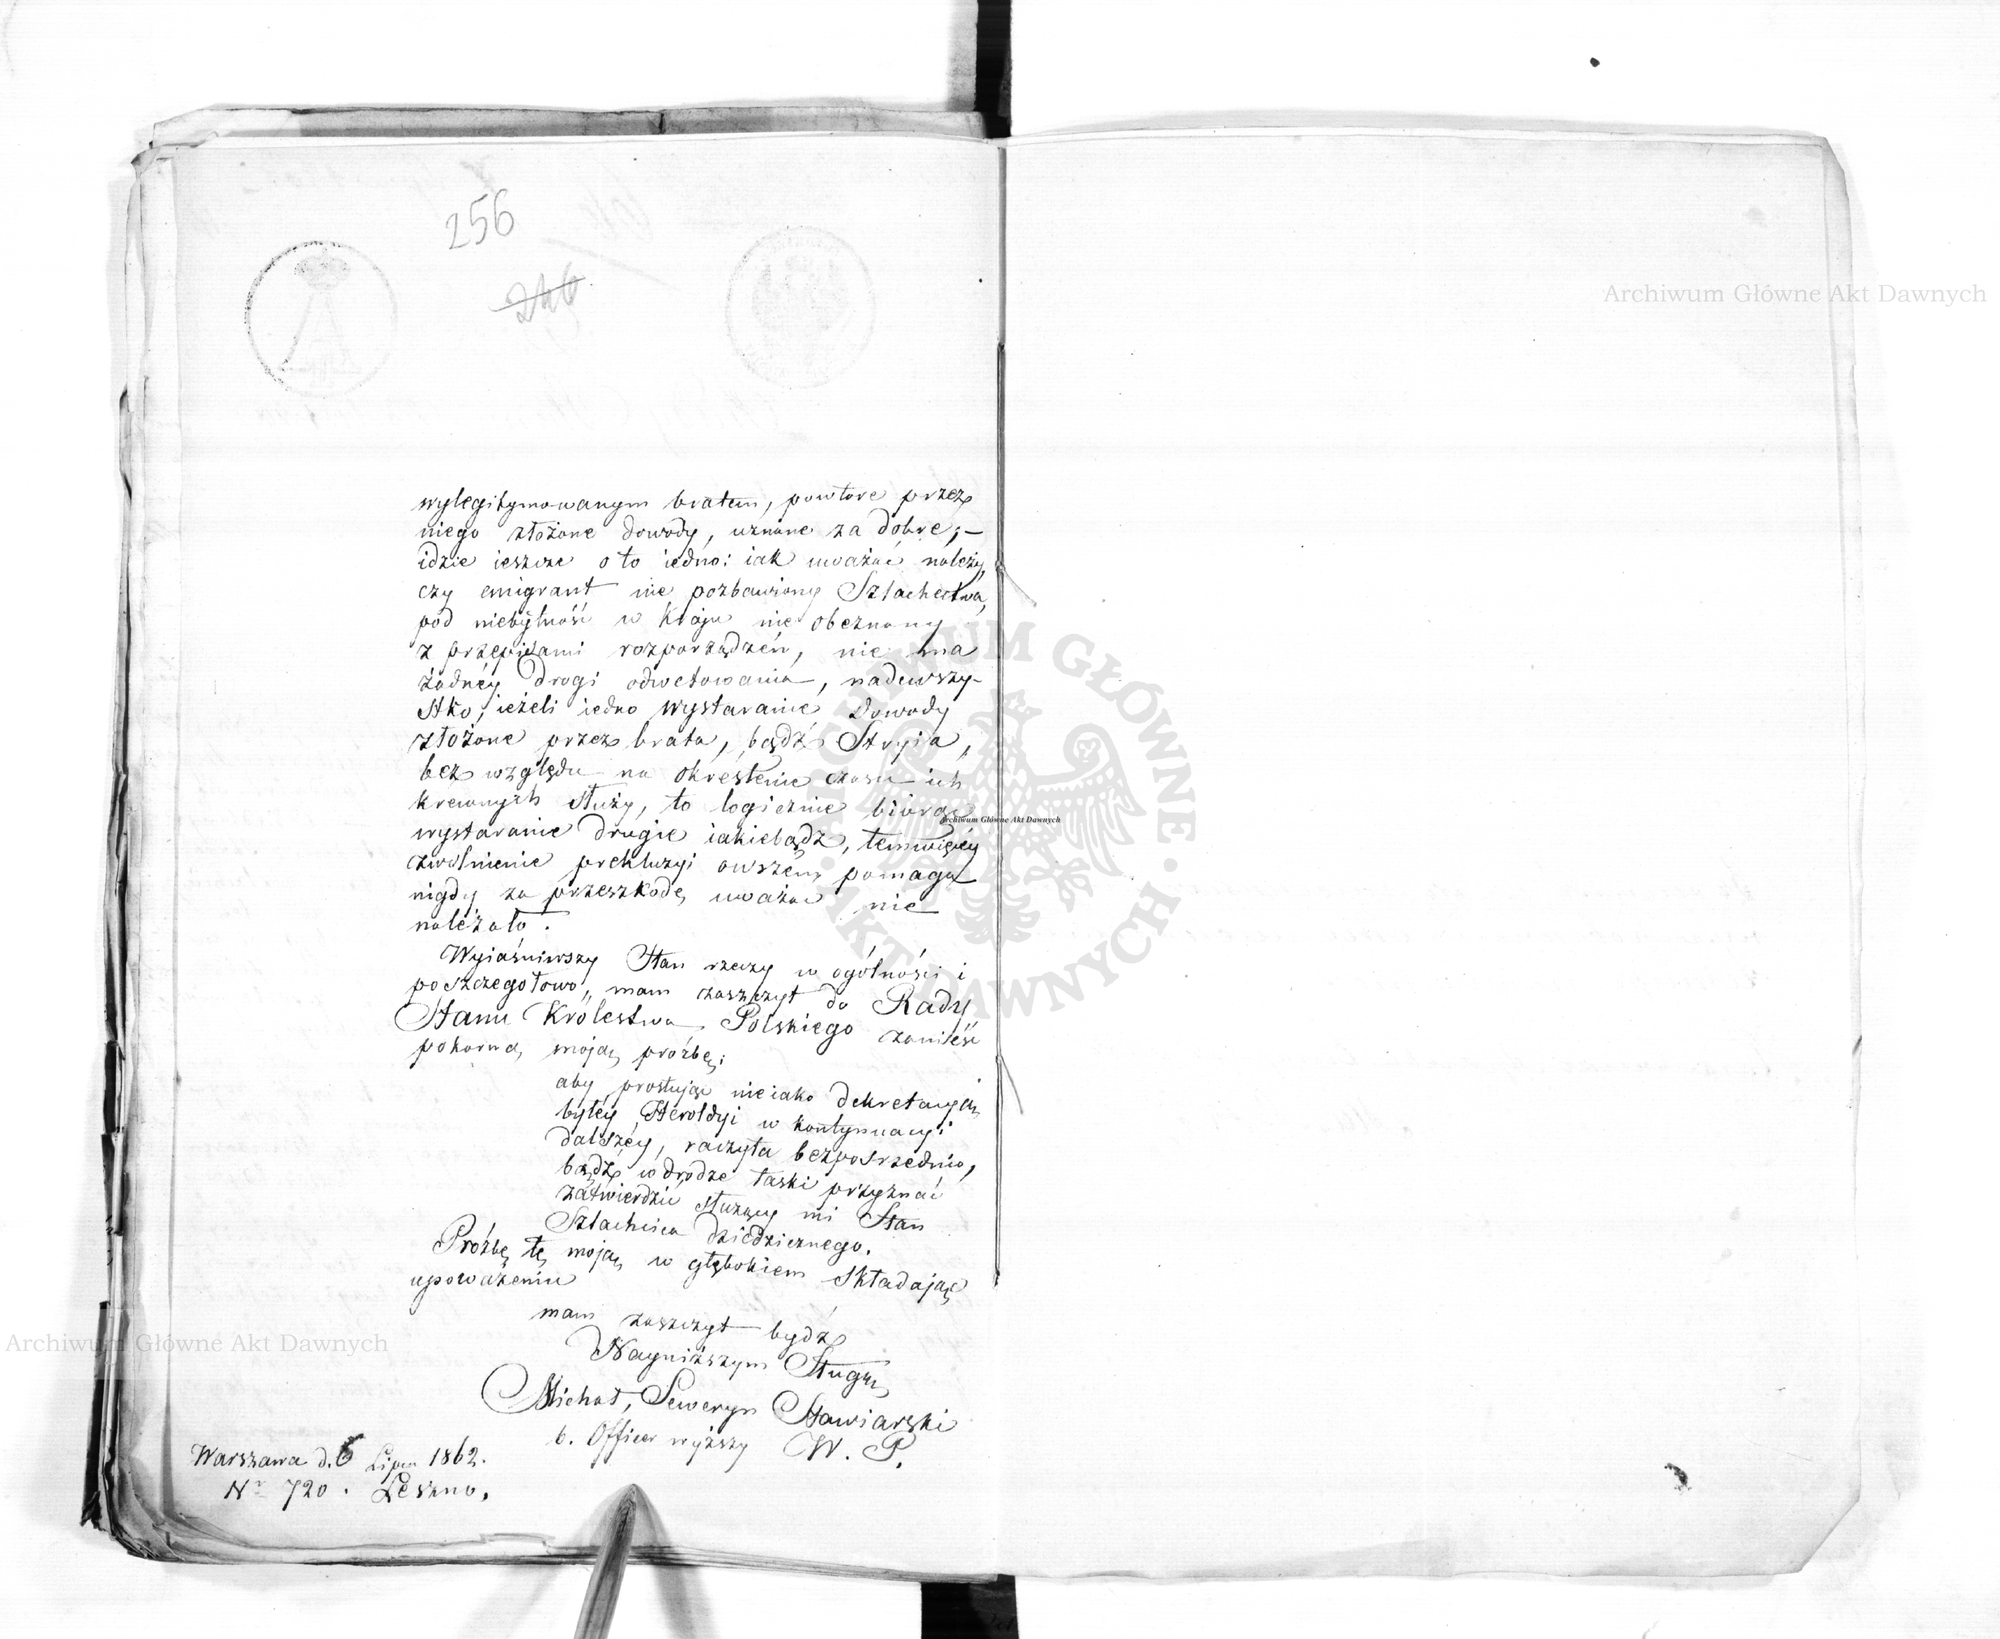 256
246
wylegitymowanym bratem, powtóre przez
niego złożone dowody, uznane za dobre; –
idzie ieszcze o to iedno: iak uważać należy,
czy emigrant nie pozbawiony Szlachectwa,
pod niebytność w Kraju nie obeznany
z przepisami rozporządzeń, nie ma
żadnéy drogi odwetowania, nadewszy-
stko, ieżeli iedno wystaranie dowody
złożone przez brata, bądź Stryia,
bez względu na okreslenie czasu ich
krewnych służy, to logicznie biorąc
wystaranie drugie iakiebądź, temwięcéy
zwolnienie prekluzyi owszem pomaga
nigdy za przeszkodę uważać nie
należało.
Wyiaśniwszy Stan rzeczy w ogólności i
poszczegołowo, mam zaszczyt do Rady
Stanu Królestwa Polskiego zanieść
pokorną moją prożbę:
aby, prostując nieiako dekretacyią
byłéy Heroldyi w kontynuacyi
dalszéy, raczyła bezposrzednio,
bądź w drodze łaski przyznać
zatwierdzić służący mi Stan
Szlachcica dziedzicznego.
Prożbę tę moją w głębokiem składając
upoważeniu
mam zaszczyt bydź
Nayniższym Sługą
Michał, Seweryn Stawiarski
b. Officer wyższy W. P.
Warszawa d. 6 Lipca 1862.
Nr 720. Leszno.
Archiwum Główne Akt Dawnych
Archiwum Główne Akt Dawnych
Archiwum Główne Akt Dawnych
ARCHIWUM GŁÓWNE · AKT DAWNYCH ·